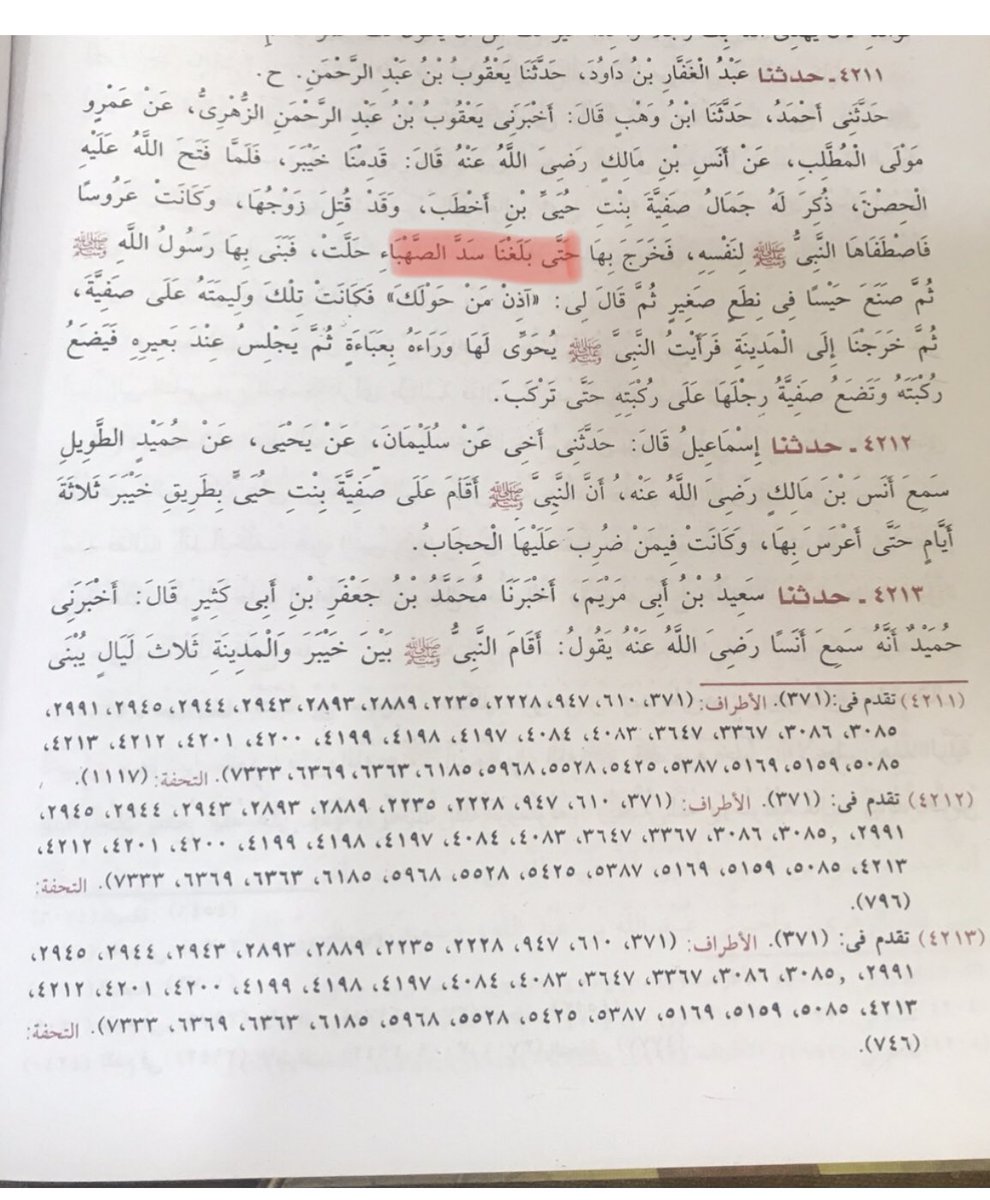 ٤٢١١ـ حدثنا عَبْدُ الْغَفَّارِ بْنُ دَاوُدَ، حَدَّثَنَا يَعْقُوبُ بْنُ عَبْدِ الرَّحْمَنِ. ح.
حَدَّثَنِى أَحْمَدُ، حَدَّثَنَا ابْنُ وَهْبٍ قَالَ: أَخْبَرَنِى يَعْقُوبُ بْنُ عَبْدِ الرَّحْمَنِ الزُّهْرِىُّ، عَنْ عَمْرٍو
مَوْلَى الْمُطَّلِبِ، عَنْ أَنَسِ بْنِ مَالِكٍ رَضِىَ اللَّهُ عَنْهُ قَالَ: قَدِمْنَا خَيْبَرَ، فَلَمَّا فَتَحَ اللَّهُ عَلَيْهِ
الْحِصْنَ، ذُكِرَ لَهُ جَمَالُ صَفِيَّةَ بِنْتِ حُيَىِّ بْنِ أَخْطَبَ، وَقَدْ قُتِلَ زَوْجُهَا، وَكَانَتْ عَرُوسًا
فَاصْطَفَاهَا النَّبِىُّ ﷺ لِنَفْسِهِ، فَخَرَجَ بِهَا حَتَّى بَلَغْنَا سَدَّ الصَّهْبَاءِ حَلَّتْ، فَبَنَى بِهَا رَسُولُ اللَّهِ ﷺ
ثُمَّ صَنَعَ حَيْسًا فِى نِطَعٍ صَغِيرٍ ثُمَّ قَالَ لِى: «آذِنْ مَنْ حَوْلَكَ» فَكَانَتْ تِلْكَ وَلِيمَتَهُ عَلَى صَفِيَّةَ،
ثُمَّ خَرَجْنَا إِلَى الْمَدِينَةِ فَرَأَيْتُ النَّبِىَّ ﷺ يُحَوِّى لَهَا وَرَاءَهُ بِعَبَاءَةٍ ثُمَّ يَجْلِسُ عِنْدَ بَعِيرِهِ فَيَضَعُ
رُكْبَتَهُ وَتَضَعُ صَفِيَّةُ رِجْلَهَا عَلَى رُكْبَتِهِ حَتَّى تَرْكَبَ.
٤٢١٢ ـ حدثنا إِسْمَاعِيلُ قَالَ: حَدَّثَنِى أَخِى عَنْ سُلَيْمَانَ، عَنْ يَحْيَى، عَنْ حُمَيْدٍ الطَّوِيلِ
سَمِعَ أَنَسَ بْنَ مَالِكٍ رَضِىَ اللَّهُ عَنْهُ، أَنَّ النَّبِىَّ ﷺ أَقَامَ عَلَى صَفِيَّةَ بِنْتِ حُيَىٍّ بِطَرِيقِ خَيْبَرَ ثَلاثَةَ
أَيَّامٍ حَتَّى أَعْرَسَ بِهَا، وَكَانَتْ فِيمَنْ ضُرِبَ عَلَيْهَا الْحِجَابُ.
٤٢١٣ ـ حدثنا سَعِيدُ بْنُ أَبِى مَرْيَمَ، أَخْبَرَنَا مُحَمَّدُ بْنُ جَعْفَرِ بْنِ أَبِى كَثِيرٍ قَالَ: أَخْبَرَنِى
حُمَيْدٌ أَنَّهُ سَمِعَ أَنَسًا رَضِىَ اللَّهُ عَنْهُ يَقُولُ: أَقَامَ النَّبِىُّ ﷺ بَيْنَ خَيْبَرَ وَالْمَدِينَةِ ثَلاثَ لَيَالٍ يُبْنَى
(٤٢١١) تقدم فى:(٣٧١). الأطراف: (٣٧١، ٦١٠، ٩٤٧، ٢٢٢٨، ٢٢٣٥، ٢٨٨٩، ٢٨٩٣، ٢٩٤٣، ٢٩٤٤، ٢٩٤٥، ٢٩٩١،
٣٠٨٥، ٣٠٨٦، ٣٣٦٧، ٣٦٤٧، ٤٠٨٣، ٤٠٨٤، ٤١٩٧، ٤١٩٨، ٤١٩٩، ٤٢٠٠، ٤٢٠١، ٤٢١٢، ٤٢١٣،
٥٠٨٥، ٥١٥٩، ٥١٦٩، ٥٣٨٧، ٥٤٢٥، ٥٥٢٨، ٥٩٦٨، ٦١٨٥، ٦٣٦٣، ٦٣٦٩، ٧٣٣٣). التحفة: (١١١٧).
(٤٢١٢) تقدم فى: (٣٧١). الأطراف: (٣٧١، ٦١٠، ٩٤٧، ٢٢٢٨، ٢٢٣٥، ٢٨٨٩، ٢٨٩٣، ٢٩٤٣، ٢٩٤٤، ٢٩٤٥،
٢٩٩١، ,٣٠٨٥، ٣٠٨٦، ٣٣٦٧، ٣٦٤٧، ٤٠٨٣، ٤٠٨٤، ٤١٩٧، ٤١٩٨، ٤١٩٩، ٤٢٠٠، ٤٢٠١، ٤٢١٢،
٤٢١٣، ٥٠٨٥، ٥١٥٩، ٥١٦٩، ٥٣٨٧، ٥٤٢٥، ٥٥٢٨، ٥٩٦٨، ٦١٨٥، ٦٣٦٣، ٦٣٦٩، ٧٣٣٣). التحفة:
(٧٩٦).
(٤٢١٣) تقدم فى: (٣٧١). الأطراف: (٣٧١، ٦١٠، ٩٤٧، ٢٢٢٨، ٢٢٣٥، ٢٨٨٩، ٢٨٩٣، ٢٩٤٣، ٢٩٤٤، ٢٩٤٥،
٢٩٩١، ,٣٠٨٥، ٣٠٨٦، ٣٣٦٧، ٣٦٤٧، ٤٠٨٣، ٤٠٨٤، ٤١٩٧، ٤١٩٨، ٤١٩٩، ٤٢٠٠، ٤٢٠١، ٤٢١٢،
٤٢١٣، ٥٠٨٥، ٥١٥٩، ٥١٦٩، ٥٣٨٧، ٥٤٢٥، ٥٥٢٨، ٥٩٦٨، ٦١٨٥، ٦٣٦٣، ٦٣٦٩، ٧٣٣٣). التحفة:
(٧٤٦).